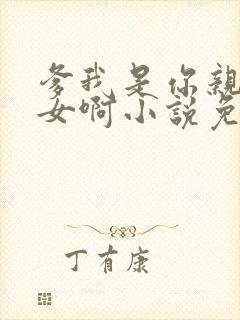 爹我是你親
女啊小說免
丁有康